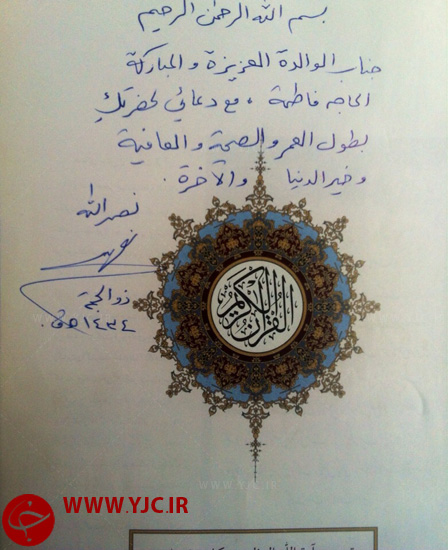 بسم الله الرحمن الرحيم
جناب الوالدة العزيزة والمباركة
الحاجه فاطمة، مع دعائي لحضرتكِ
بطول العمر والصحة والعافية
وخير الدنيا والآخرة.
نصر الله
ذو الحجة
١٤٣٤ هـ ق.
القرآن الكريم
WWW.YJC.IR
WWW.YJC.IR